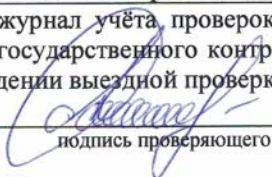 журнал учёта проверок
государственного контр
дении выездной проверк
подпись проверяющего